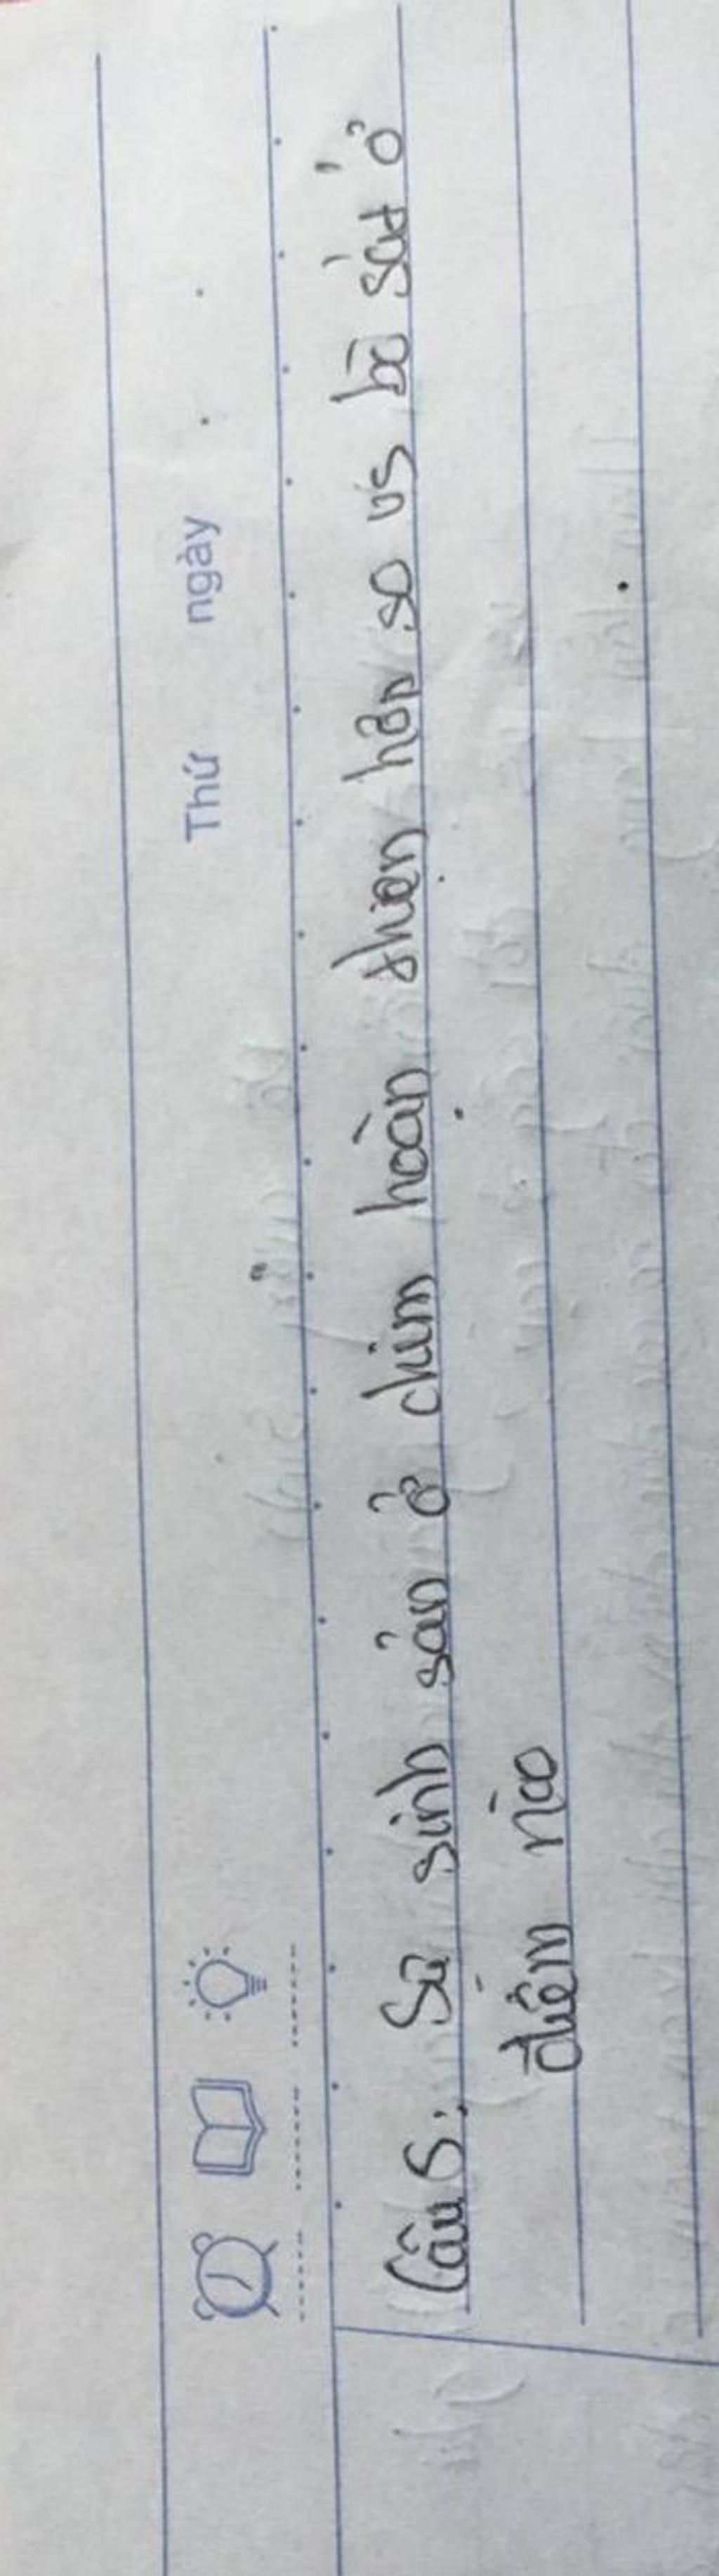 Thứ ngày
Câu 5: Sự sinh sản ở chim hoàn thiện hơn so vs bò sát ở
điểm nào